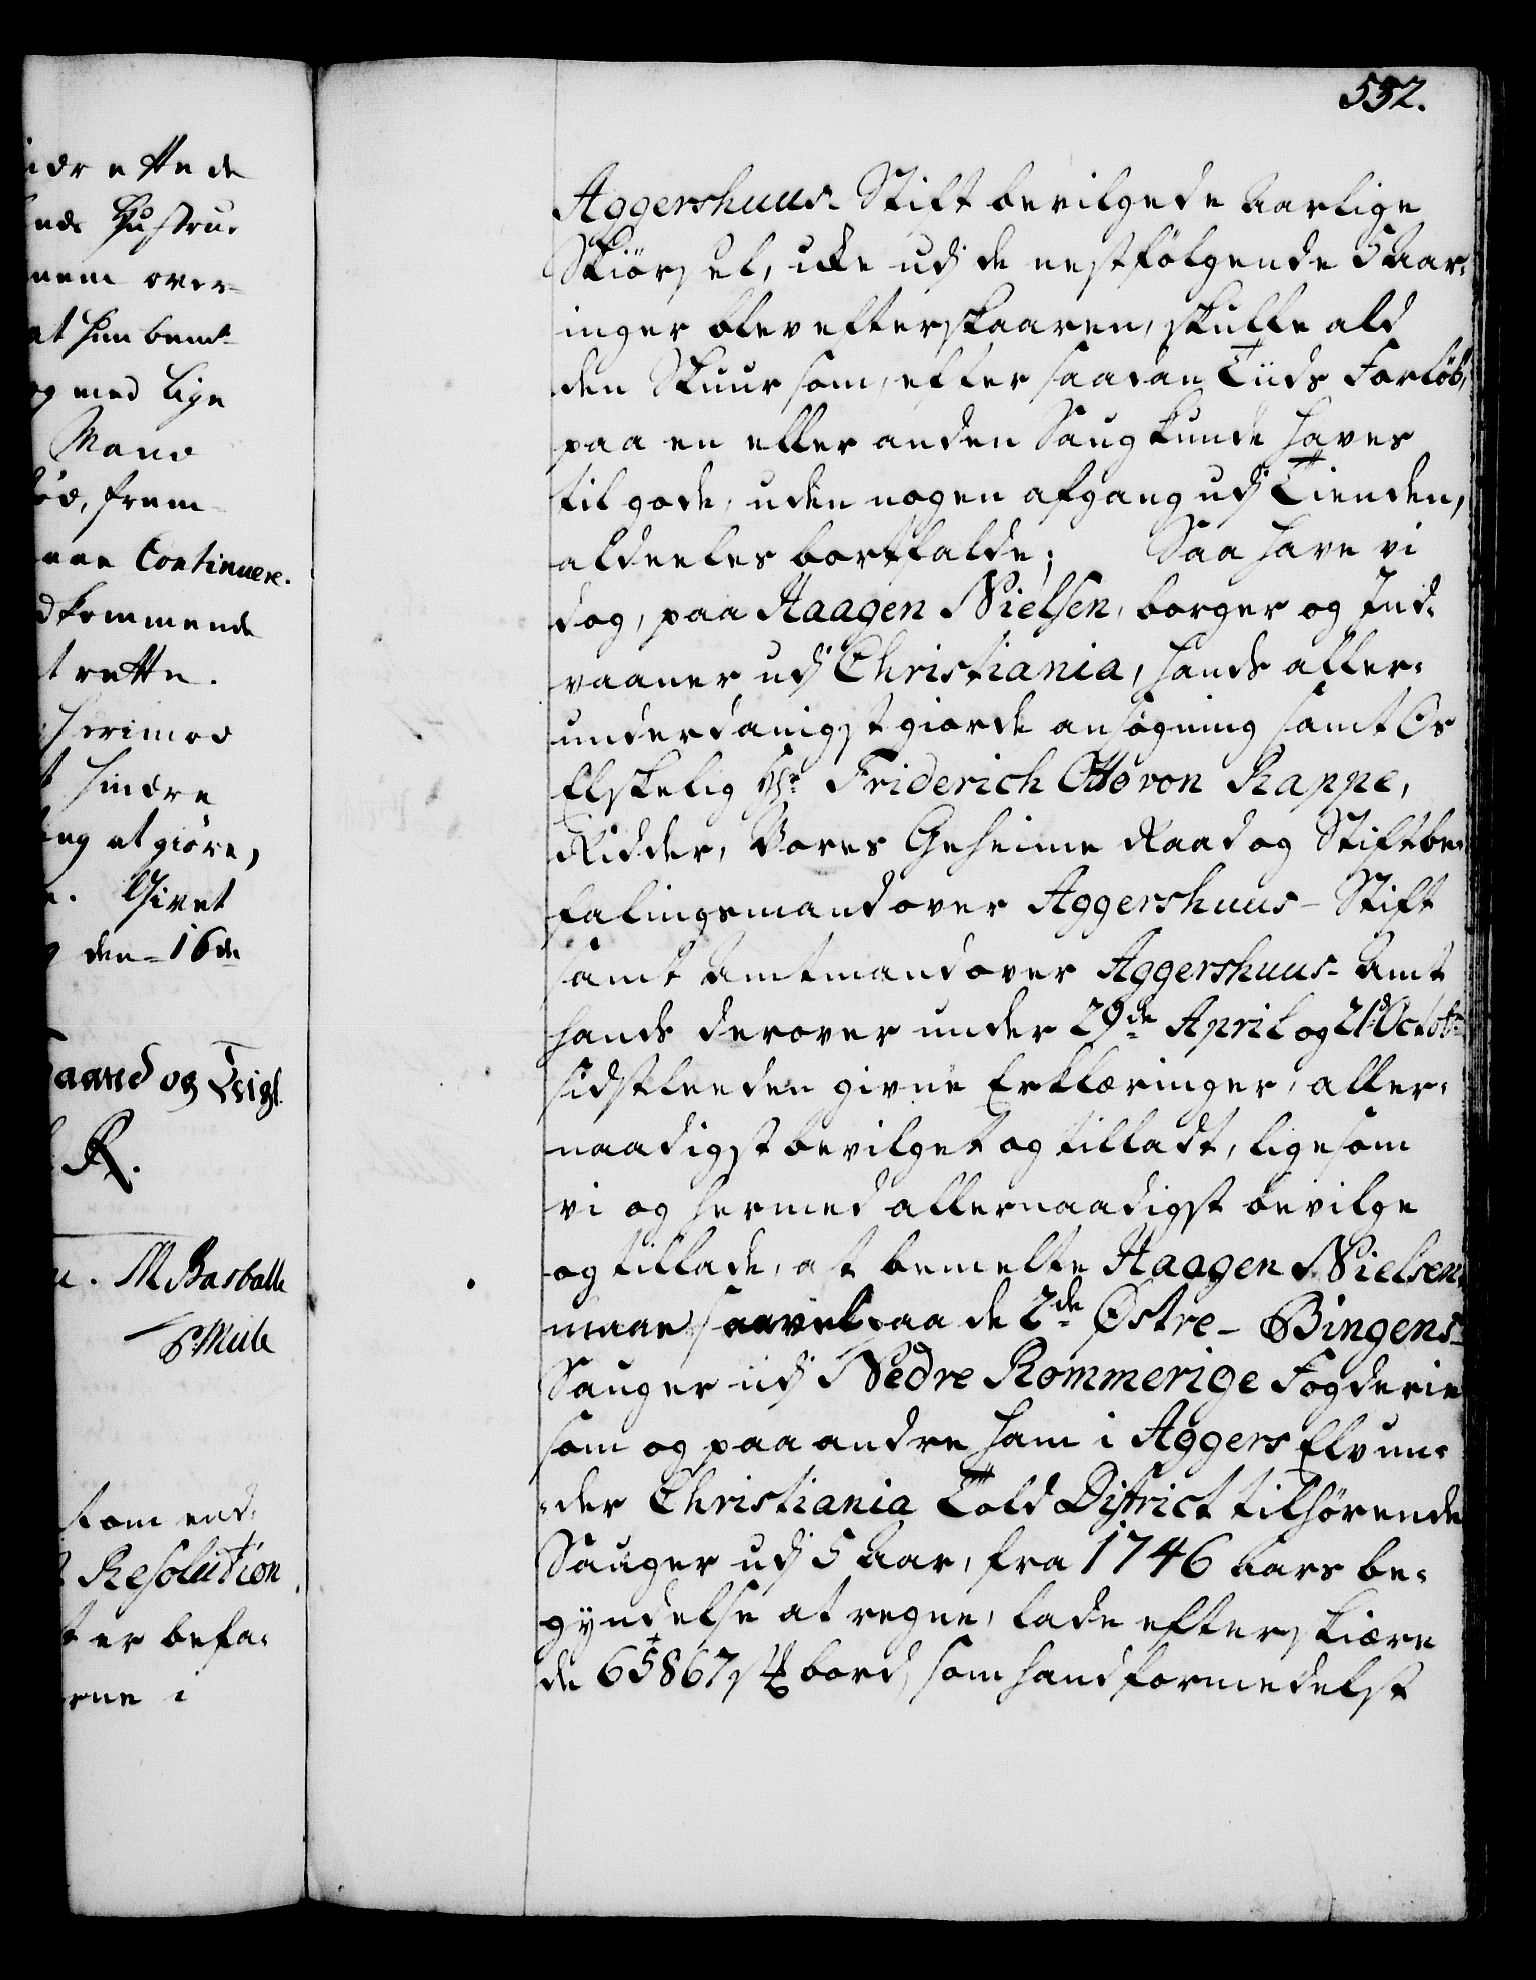 552.
idrettede
ends Hustrue
nem over-
at hun bemte
og med lige
Mand
död, frem-
Continuere.
dkommende
t rette.
herimod
hindre
ing at giöre,
Givet
den 16de
Haand og Seigl.
R.
M Basballe
P. Mule
som end-
Resolution
t er befa-
erne i
Aggershuus-Stift bevilgede Aarlige
Skiörsel, icke udj de nestfölgende 5 Aar-
inger blev efterskaaren, skulle ald
den Skuur som, efter saadan Tiids Forlöb,
paa en eller anden Saug kunde haves
til gode, uden nogen afgang udj Tienden,
aldeeles bortfalde; Saa have vi
dog, paa Haagen Nielsen, borger og Ind-
vaaner udj Christiania, hands aller-
underdanigst giorde ansøgning samt Os
Elskelig Hr. Friderich Otto von Rappe,
Ridder, Vores Geheime Raad og Stiftbe-
falingsmand over Aggershuus-Stift
samt Amtmand over Aggershuus-Amt
hands derover under 29de April og 21d Octobr
sidstleeden givne Erklæringer, aller-
naadigst bevilget og tilladt, ligesom
vi og hermed allernaadigst bevilge
og tillade, at bemelte Haagen Nielsen
maae saavel paa de 2de Østre-Bingens-
Sauger udj Nedre Rommerige Fogderie
som og paa andre ham i Aggers Elv un-
-der Christiania Told District tilhørende
Sauger udj 5 Aar, fra 1746 Aars be-
gyndelse at regne, lade efterskiære
de 65867 st bord, som hand formedelst